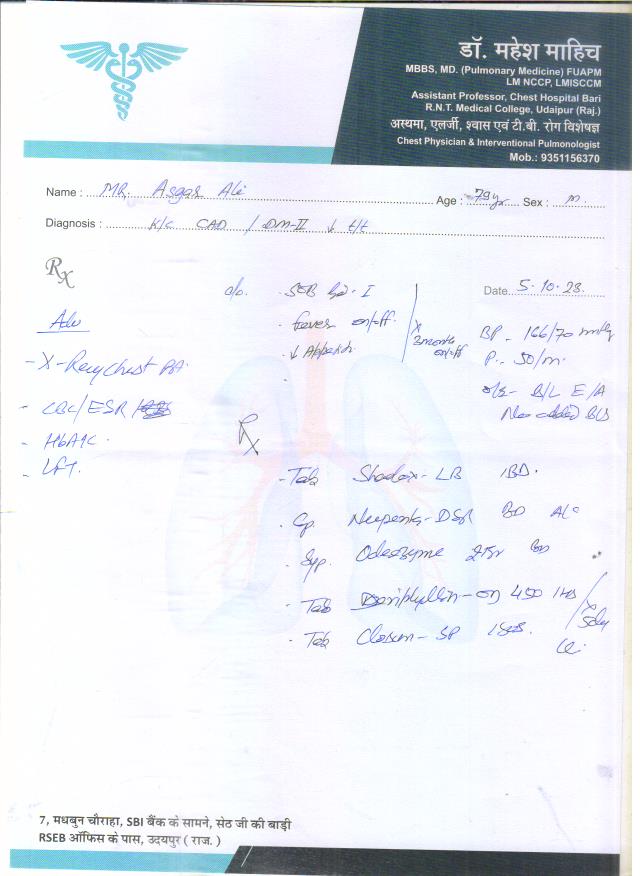 डॉ. महेश माहिच
MBBS, MD. (Pulmonary Medicine) FUAPM
LM NCCP, LMISCCM
Assistant Professor, Chest Hospital Bari
R.N.T. Medical College, Udaipur (Raj.)
अस्थमा, एलर्जी, श्वास एवं टी.बी. रोग विशेषज्ञ
Chest Physician & Interventional Pulmonologist
Mob.: 9351156370
Name : MR. Asgar Ali Age : 79 yr Sex : M.
Diagnosis : K/C CAD / DM-II ↓ t/t
Rx
Date 5.10.23.
c/o. - SOB - I
- Fever on/off.
- ↓ Appetite
x 2 month on/off
BP - 166/70 mmHg
P. - 50/m.
o/e - B/L E/A
No added
Adv
- X-Ray Chest PA.
- CBC/ESR
- HbA1C.
- LFT.
Rx
- Tab LB BD.
- Cp. DSR BD
- Syp. BD
- Tab Deriphyllin - 450 1HS
- Tab SP
7, मधबुन चौराहा, SBI बैंक के सामने, सेठ जी की बाड़ी
RSEB ऑफिस के पास, उदयपुर ( राज. )